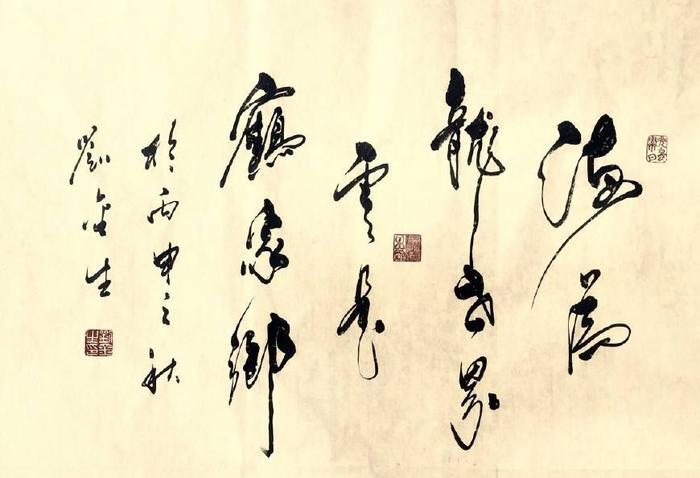 海为
龍世界
雲是
鶴家鄉
於丙申之秋
金生